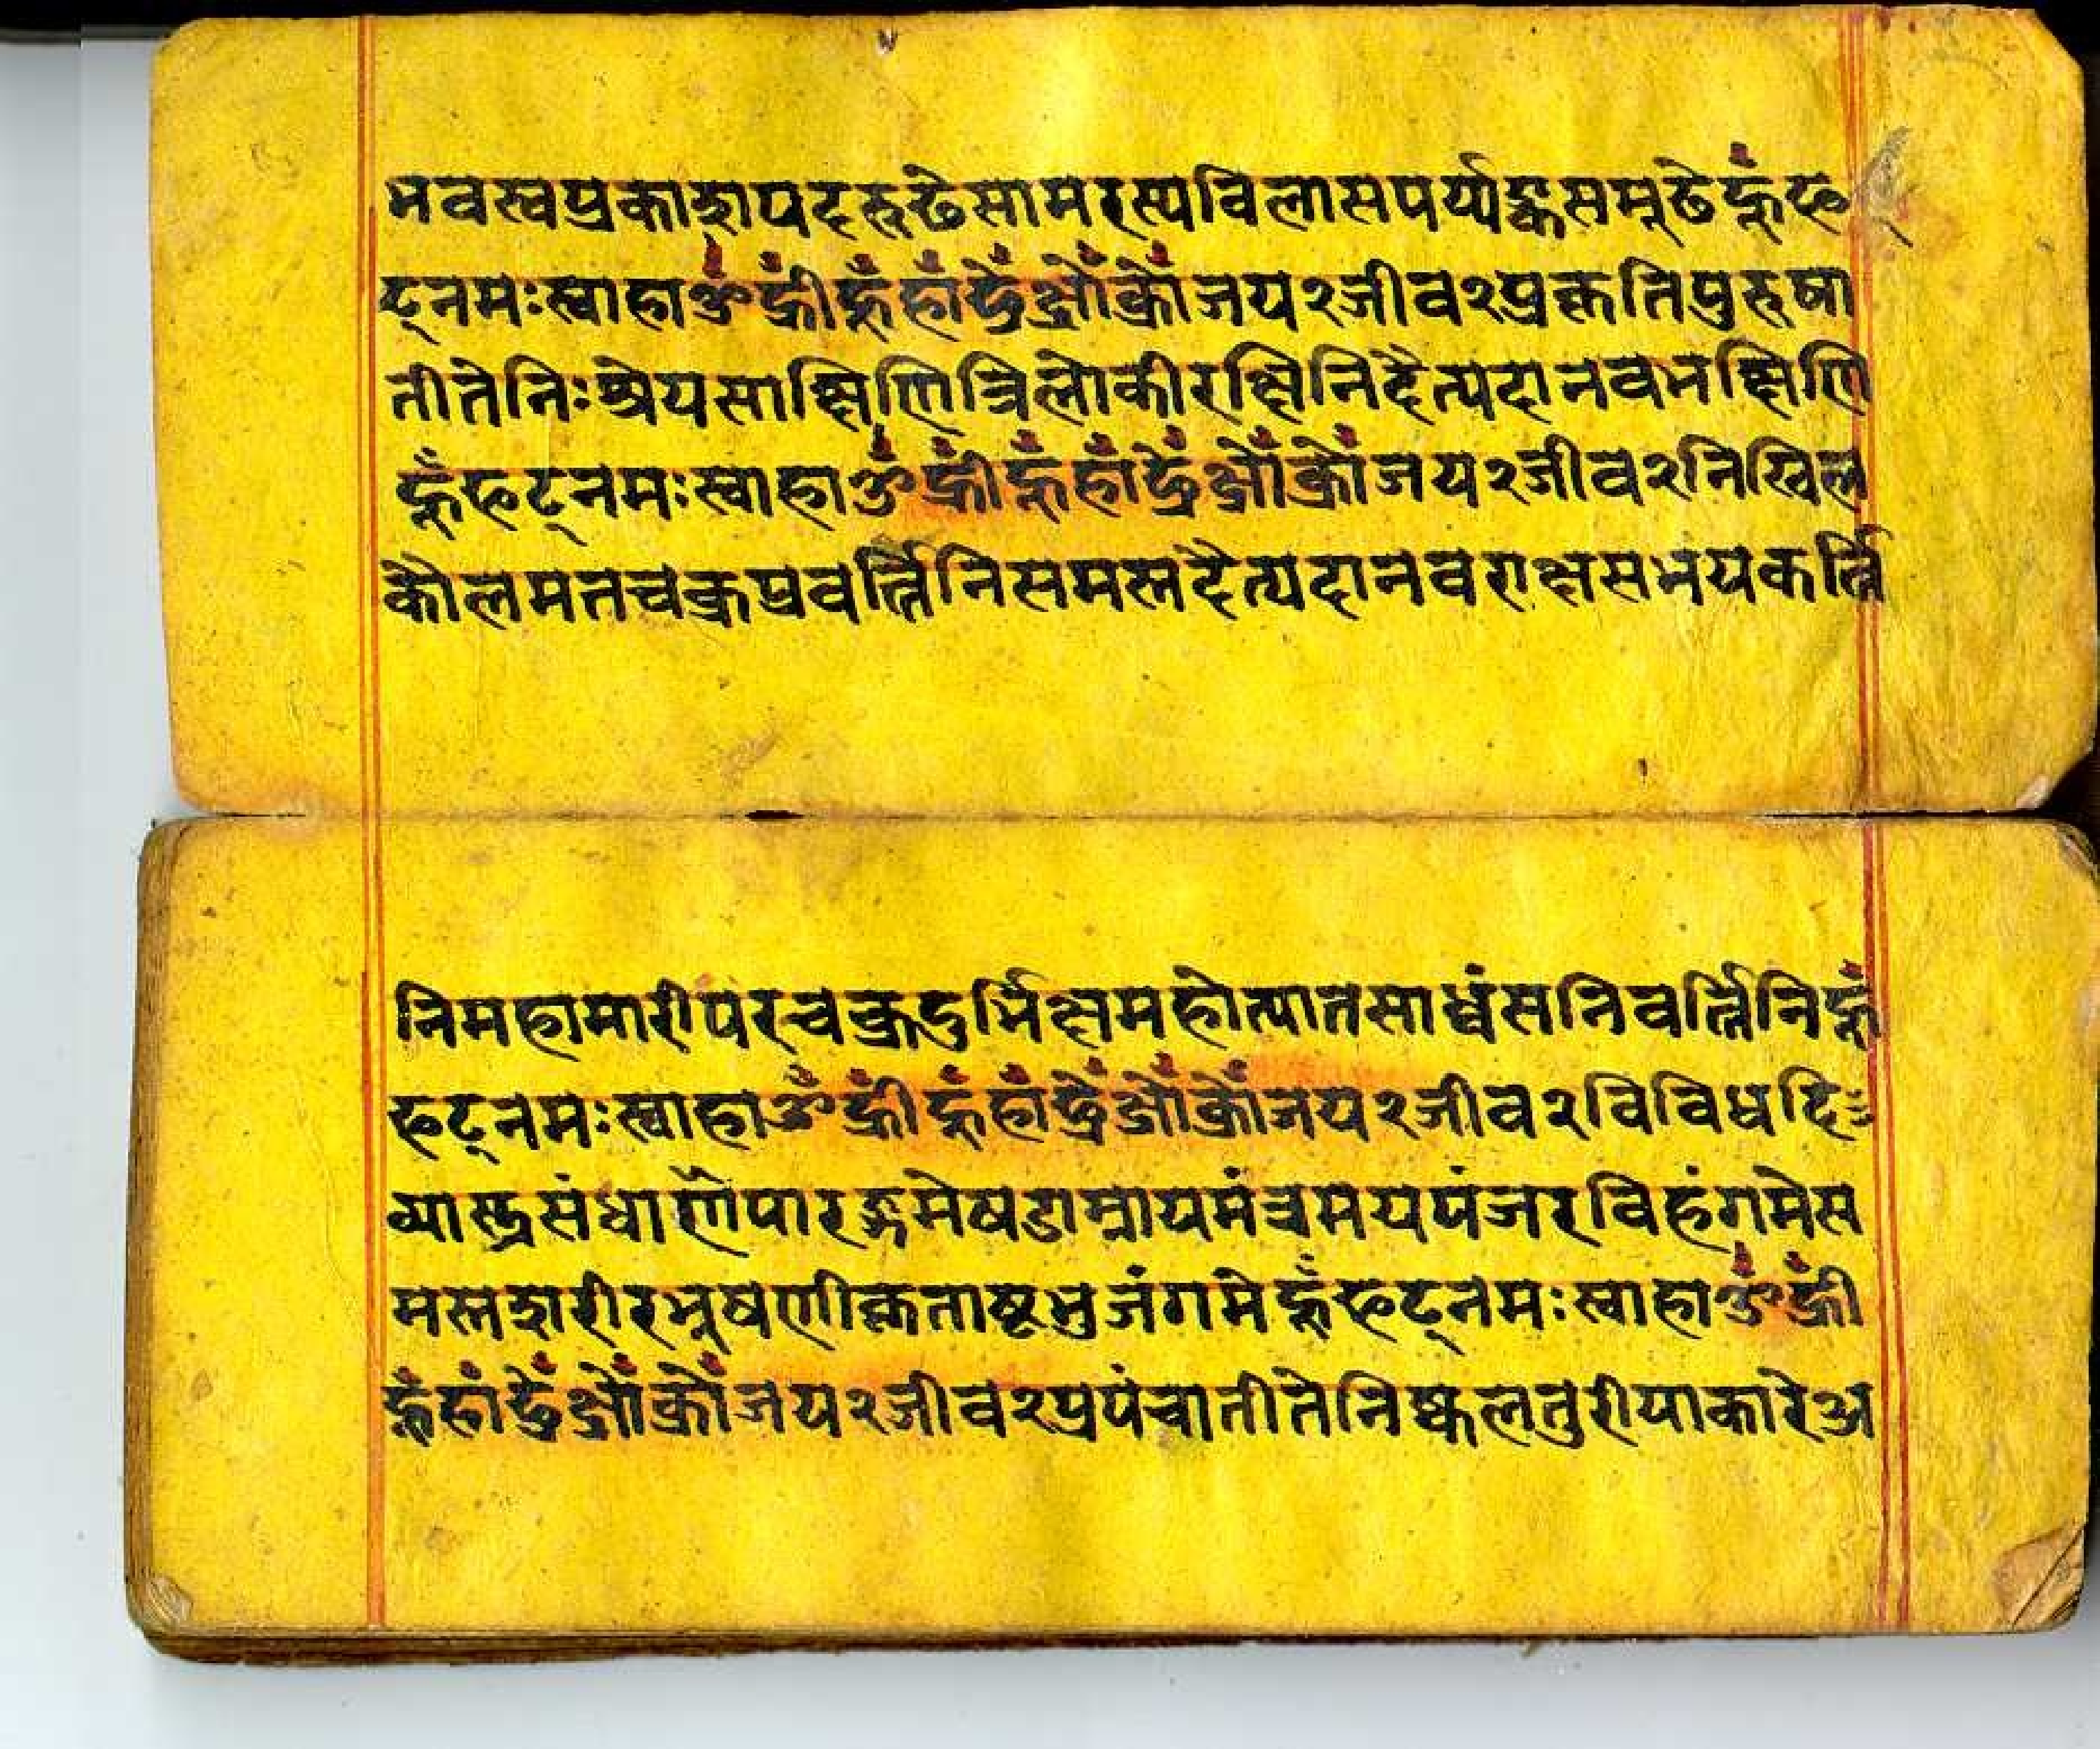 भवस्वप्रकाशपदरुढेसामरस्यविलासपर्य्यङ्कसमूढेह्रूँफ
ट्नमःस्वाहाॐह्रीँह्रूँहाँह्रेँक्षौँक्रोँजय२जीव२प्रकृतिपुरुषा
तीतेनिःश्रेयसाक्षिणित्रिलोकीरक्षिनिदैत्यदानवभक्षिणि
ह्रूँफट्नमःस्वाहाॐह्रीँह्रूँहाँह्रेँक्षौँक्रोँजय२जीव२निखिल
कौलमतचक्रप्रवर्त्तिनिसमस्तदैत्यदानवराक्षसभयकर्त्ति
निमहामारीपरचक्रदुर्भिक्षमहोत्पातसाध्वंसनिवर्त्तिनिह्रूँ
फट्नमःस्वाहाॐह्रीँह्रूँहाँह्रेँक्षौँक्रोँजय२जीव२विविधदि
व्यास्त्रसंधाणैपारङ्गमेषडाम्नायमंत्रमयपंजरविहंगमेस
मस्तशरीरभूषणीकृताष्टभुजंगमेह्रूँफट्नमःस्वाहाॐह्रीँ
ह्रूँहाँह्रेँक्षौँक्रोँजय२जीव२प्रपंचातीतेनिष्कलतुरीयाकारेअ